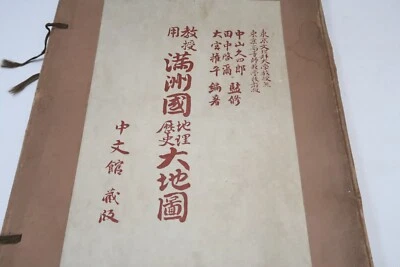 東京文理科大學教授
東京高等師範學校教授
中山久四郎
田中啓爾 監修
大宮権平 編著
教授用 滿洲國 地理歷史 大地圖
中文館 藏版